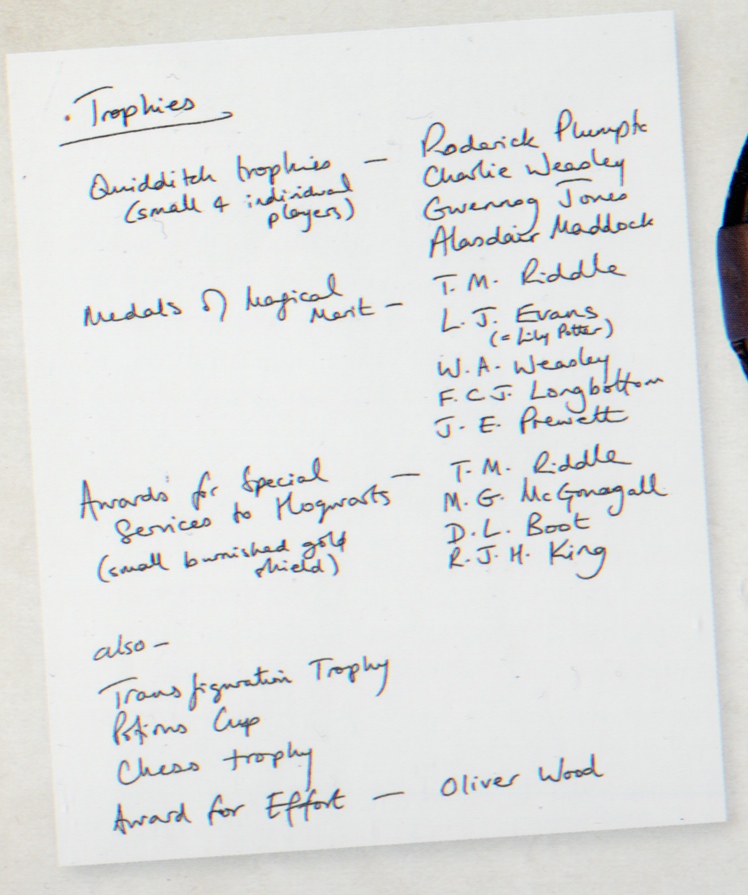 · Trophies
Quidditch trophies — Roderick Plumpton
(small & individual players) Charlie Weasley
Gwennog Jones
Alasdair Maddock
Medals of Magical Merit — T. M. Riddle
L. J. Evans
(= Lily Potter)
W. A. Weasley
F. C. J. Longbottom
J. E. Prewett
Awards for Special — T. M. Riddle
Services to Hogwarts M. G. McGonagall
(small burnished gold D. L. Boot
shield) R. J. H. King
also —
Transfiguration Trophy
Potions Cup
Chess trophy
Award for Effort — Oliver Wood